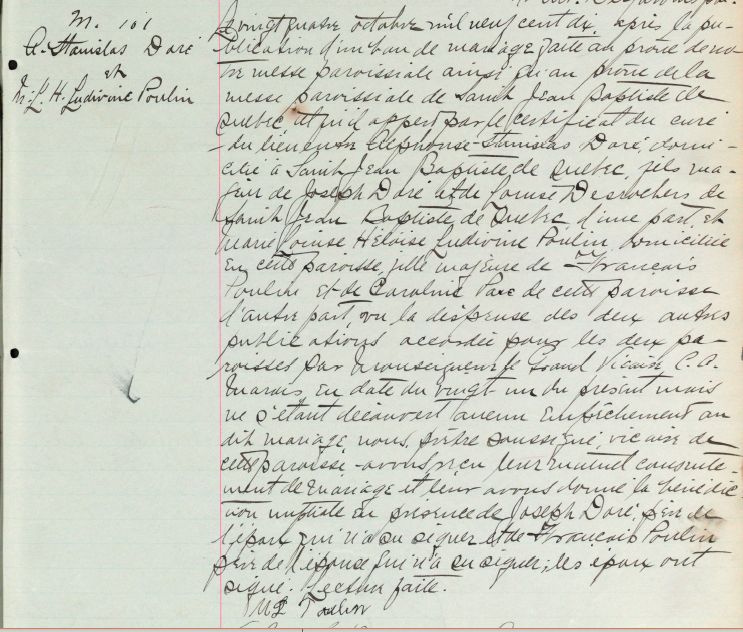 M. 101
A. Stanislas Doré
et
M. L. H. Ludivine Poulin
Le vingt quatre octobre mil neuf cent dix, après la pu-
blication d'un ban de mariage faite au prône de no-
tre messe paroissiale ainsi qu'au prône de la
messe paroissiale de Saint Jean Baptiste de
Quebec, tel qu'il appert par le certificat du curé
du lieu entre Alphonse Stanislas Doré, domi-
cilié à Saint Jean Baptiste de Quebec, fils ma-
jeur de Joseph Doré et de Louise Desrochers de
Saint Jean Baptiste de Quebec, d'une part, et
Marie Louise Héloise Ludivine Poulin, domiciliée
en cette paroisse, fille majeure de François
Poulin et de Caroline Paré de cette paroisse
d'autre part, vu la dispense des deux autres
publications accordée pour les deux pa-
roisses par Monseigneur le Grand Vicaire C. A.
Marois, en date du vingt un du présent mois
ne s'étant découvert aucun empêchement au
dit mariage nous, prêtre soussigné, vicaire de
cette paroisse avons reçu leur mutuel consente-
ment de mariage et leur avons donné la bénédic-
tion nuptiale en présence de Joseph Doré père de
l'époux qui n'a su signer et de François Poulin
père de l'épouse qui n'a su signer; les époux ont
signé. Lecture faite.
Poulin